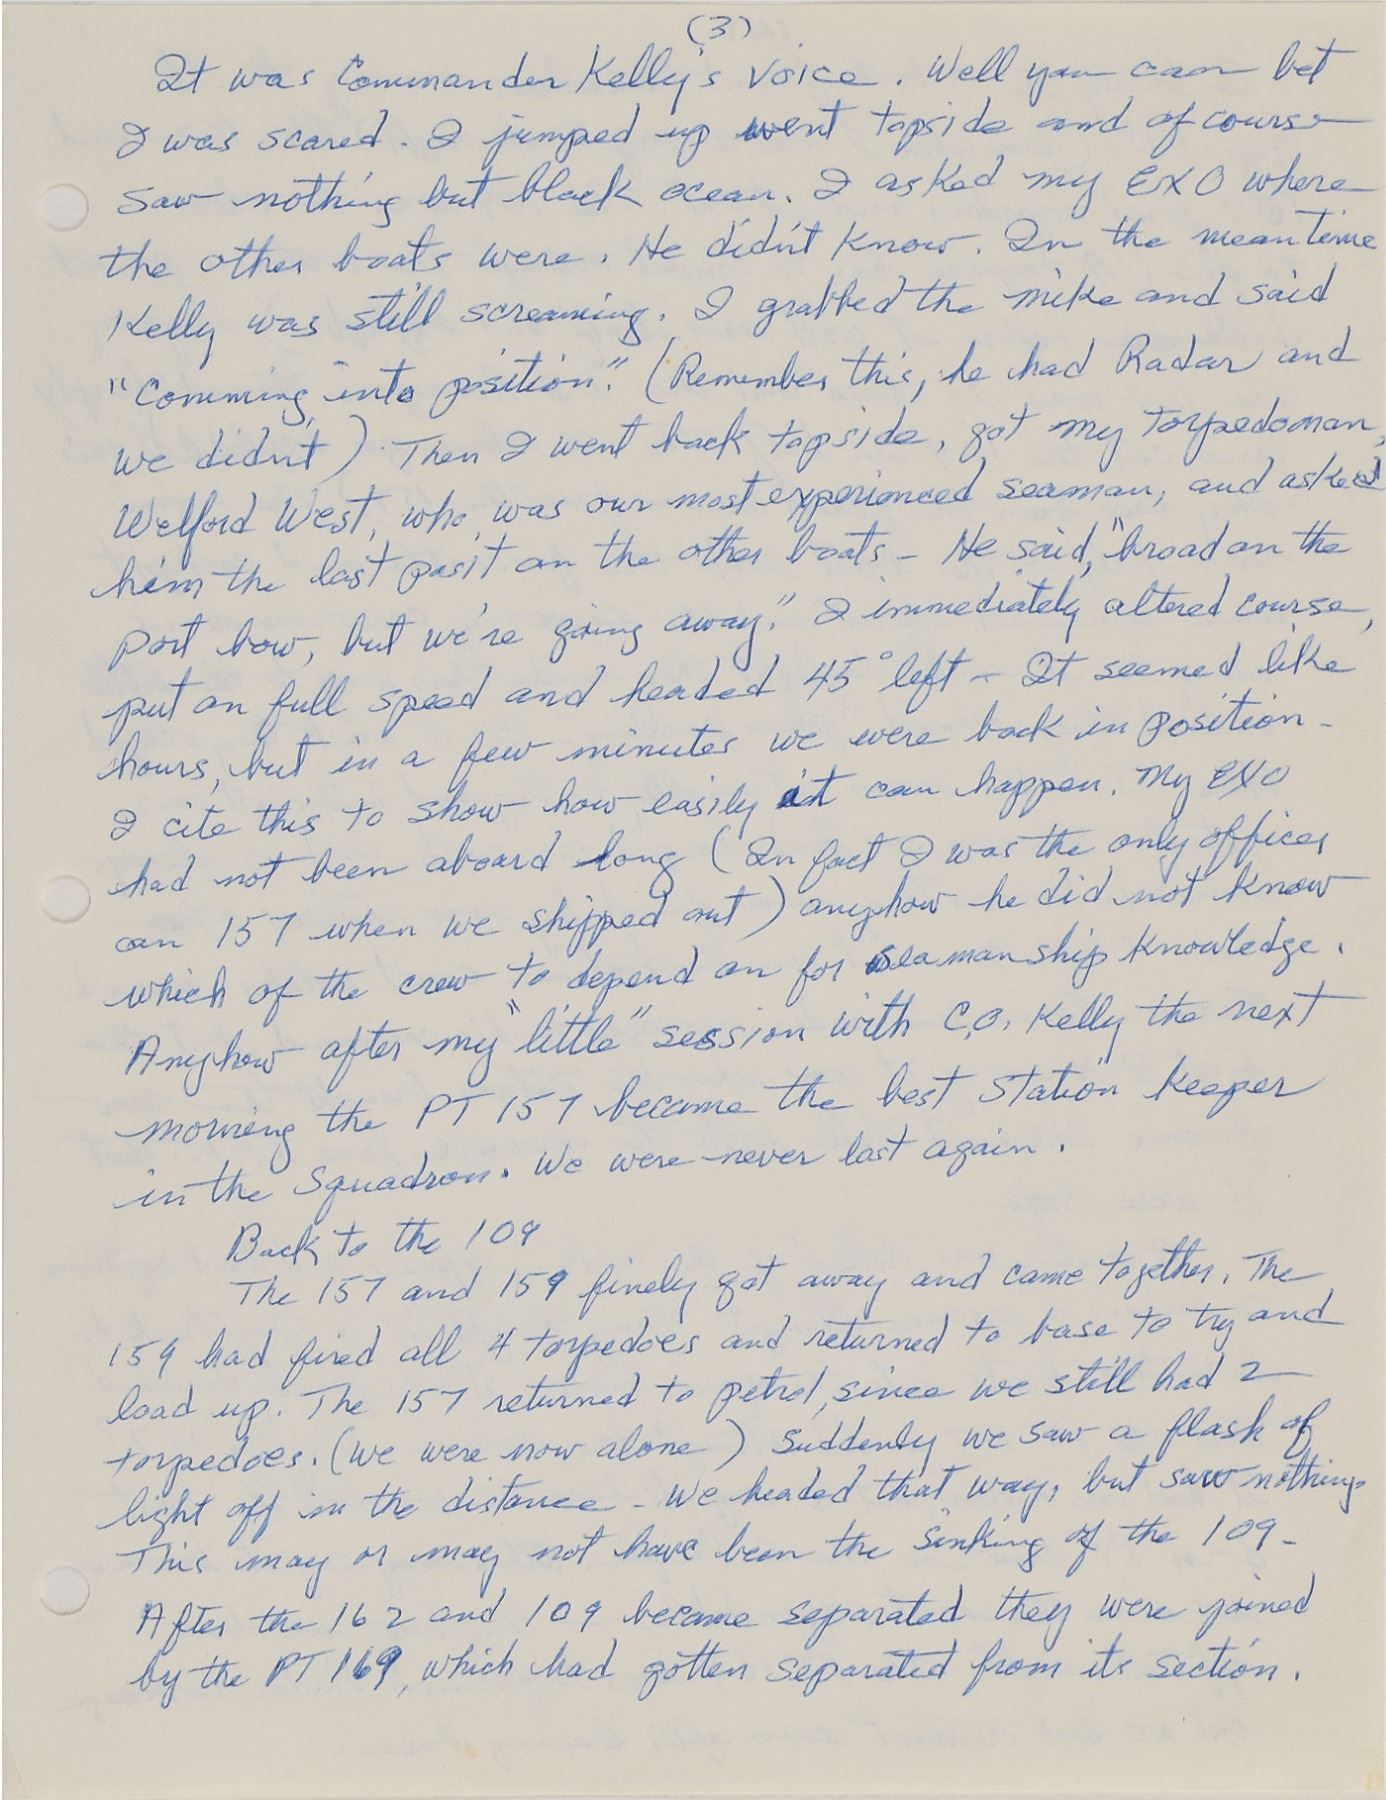 (3)
It was Commander Kelly's voice. Well you can bet
I was scared. I jumped up went topside and of course
saw nothing but black ocean. I asked my EXO where
the other boats were. He didn't know. In the meantime
Kelly was still screaming. I grabbed the mike and said
"Comming into position." (Remember this, he had Radar and
we didn't) Then I went back topside, got my torpedoman,
Welford West, who was our most experienced seaman, and asked
him the last posit on the other boats - He said, "broad on the
port bow, but we're going away." I immediately altered course,
put on full speed and headed 45° left - It seemed like
hours, but in a few minutes we were back in position -
I cite this to show how easily it can happen. My EXO
had not been aboard long (In fact I was the only officer
on 157 when we shipped out) anyhow he did not know
which of the crew to depend on for seamanship knowledge.
Anyhow after my "little" session with C.O. Kelly the next
morning the PT 157 became the best station keeper
in the Squadron. We were never lost again.
Back to the 109
The 157 and 159 finely got away and came together. The
159 had fired all 4 torpedoes and returned to base to try and
load up. The 157 returned to petrol, since we still had 2
torpedoes. (We were now alone) Suddenly we saw a flash of
light off in the distance - We headed that way, but saw nothing
This may or may not have been the sinking of the 109 -
After the 162 and 109 became separated they were joined
by the PT 169, which had gotten separated from its section.